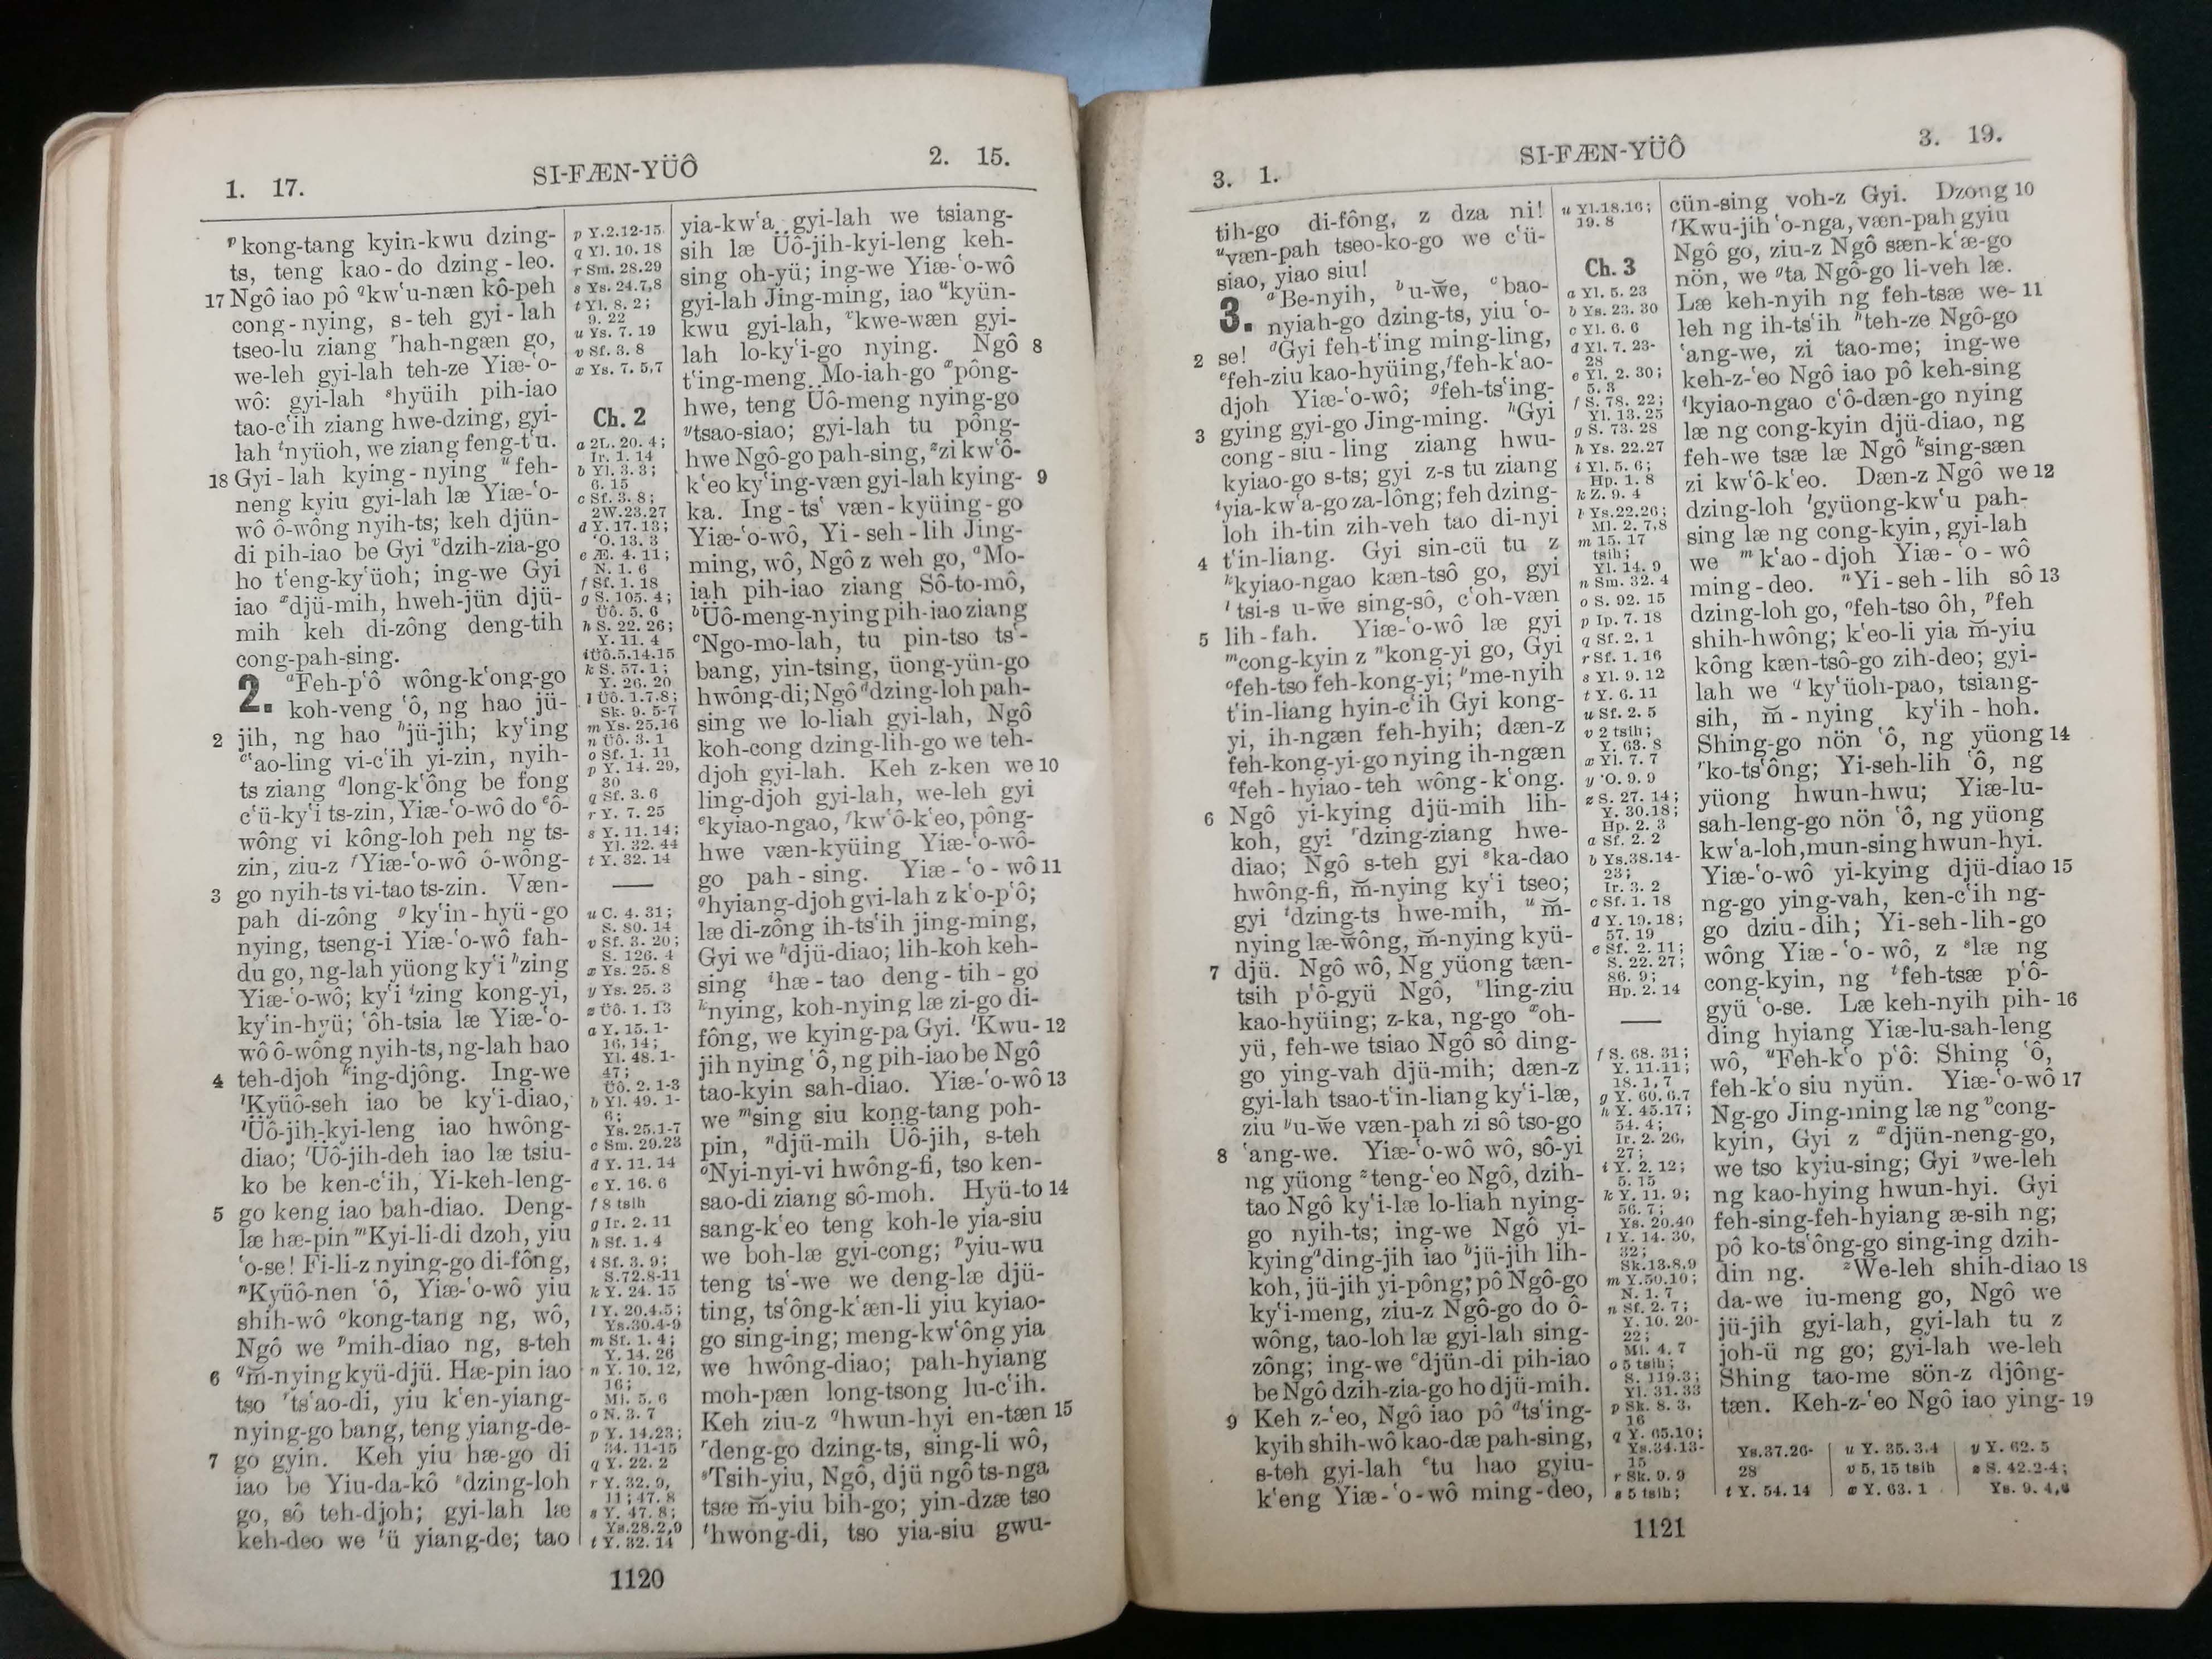 1. 17.
SI-FÆN-YÜÔ
2. 15.
ᵖkong-tang kyin-kwu dzing-
ts, teng kao-do dzing-leo.
17 Ngô iao pô ᵠkwʻu-næn kô-peh
cong-nying, s-teh gyi-lah
tseo-lu ziang ʳhah-ngæn go,
we-leh gyi-lah teh-ze Yiæ-ʻo-
wô: gyi-lah ˢhyüih pih-iao
tao-cʻih ziang hwe-dzing, gyi-
lah ᵗnyüoh, we ziang feng-tʻu.
18 Gyi-lah kying-nying ᵘfeh-
neng kyiu gyi-lah læ Yiæ-ʻo-
wô ô-wông nyih-ts; keh djün-
di pih-iao be Gyi ᵛdzih-zia-go
ho tʻeng-kyʻüoh; ing-we Gyi
iao ˣdjü-mih, hweh-jün djü-
mih keh di-zông deng-tih
cong-pah-sing.
2. ᵃFeh-pʻô wông-kʻong-go
koh-veng ʻô, ng hao jü-
2 jih, ng hao ᵇjü-jih; kyʻing
ᶜʻao-ling vi-cʻih yi-zin, nyih-
ts ziang ᵈlong-kʻông be fong
cʻü-kyʻi ts-zin, Yiæ-ʻo-wô do ᵉô-
wông vi kông-loh peh ng ts-
zin, ziu-z ᶠYiæ-ʻo-wô ô-wông-
3 go nyih-ts vi-tao ts-zin. Væn-
pah di-zông ᵍkyʻin-hyü-go
nying, tseng-i Yiæ-ʻo-wô fah-
du go, ng-lah yüong kyʻi ʰzing
Yiæ-ʻo-wô; kyʻi ⁱzing kong-yi,
kyʻin-hyü; ʻôh-tsia læ Yiæ-ʻo-
wô ô-wông nyih-ts, ng-lah hao
4 teh-djoh ᵏing-djông. Ing-we
ˡKyüô-seh iao be kyʻi-diao,
ˡÜô-jih-kyi-leng iao hwông-
diao; ˡÜô-jih-deh iao læ tsiu-
ko be ken-cʻih, Yi-keh-leng-
5 go keng iao bah-diao. Deng-
læ hæ-pin ᵐKyi-li-di dzoh, yiu
ʻo-se! Fi-li-z nying-go di-fông,
ⁿKyüô-nen ʻô, Yiæ-ʻo-wô yiu
shih-wô ᵒkong-tang ng, wô,
Ngô we ᵖmih-diao ng, s-teh
6 ᵠm̆-nying kyü-djü. Hæ-pin iao
tso ʳtsʻao-di, yiu kʻen-yiang-
nying-go bang, teng yiang-de-
7 go gyin. Keh yiu hæ-go di
iao be Yiu-da-kô ˢdzing-loh
go, sô teh-djoh; gyi-lah læ
keh-deo we ᵗü yiang-de; tao
p Y.2.12-15
q Yl. 10. 18
r Sm. 28.29
s Ys. 24.7,8
t Yl. 8. 2;
9. 22
u Ys. 7. 19
v Sf. 3. 8
x Ys. 7. 5,7
Ch. 2
a 2L. 20. 4;
Ir. 1. 14
b Yl. 3. 3;
6. 15
c Sf. 3. 8;
2W.23.27
d Y. 17. 13;
ʻO. 13. 3
e Æ. 4. 11;
N. 1. 6
f Sf. 1. 18
g S. 105. 4;
Üô. 5. 6
h S. 22. 26;
Y. 11. 4
i Üô.5.14.15
k S. 57. 1;
Y. 26. 20
l Üô. 1.7.8;
Sk. 9. 5-7
m Ys. 25.16
n Üô. 3. 1
o Sf. 1. 11
p Y. 14. 29,
30
q Sf. 3. 6
r Y. 7. 25
s Y. 11. 14;
Yl. 32. 44
t Y. 32. 14
u C. 4. 31;
S. 80. 14
v Sf. 3. 20;
S. 126. 4
x Ys. 25. 8
y Ys. 25. 3
z Üô. 1. 13
a Y. 15. 1-
16. 14;
Yl. 48. 1-
47;
Üô. 2. 1-3
b Yl. 49. 1-
6;
Ys. 25.1-7
c Sm. 29.23
d Y. 11. 14
e Y. 16. 6
f 8 tsih
g Ir. 2. 11
h Sf. 1. 4
i Sf. 3. 9;
S.72.8-11
k Y. 24. 15
l Y. 20.4.5;
Ys.30.4-9
m Sf. 1. 4;
Y. 14. 26
n Y. 10. 12,
16;
Ml. 5. 6
o N. 3. 7
p Y. 14.23;
34. 11-15
q Y. 22. 2
r Y. 32. 9,
11; 47. 8
s Y. 47. 8;
Ys.28.2,9
t Y. 32. 14
yia-kwʻa gyi-lah we tsiang-
sih læ Üô-jih-kyi-leng keh-
sing oh-yü; ing-we Yiæ-ʻo-wô
gyi-lah Jing-ming, iao ᵘkyün-
kwu gyi-lah, ᵛkwe-wæn gyi-
lah lo-kyʻi-go nying. Ngô 8
tʻing-meng Mo-iah-go ˣpông-
hwe, teng Üô-meng nying-go
ʸtsao-siao; gyi-lah tu pông-
hwe Ngô-go pah-sing, ᶻzi kwʻô-
kʻeo kyʻing-væn gyi-lah kying- 9
ka. Ing-tsʻ væn-kyüing-go
Yiæ-ʻo-wô, Yi-seh-lih Jing-
ming, wô, Ngô z weh go, ᵃMo-
iah pih-iao ziang Sô-to-mô,
ᵇÜô-meng-nying pih-iao ziang
ᶜNgo-mo-lah, tu pin-tso tsʻ-
bang, yin-tsing, üong-yün-go
hwông-di; Ngô ᵈdzing-loh pah-
sing we lo-liah gyi-lah, Ngô
koh-cong dzing-lih-go we teh-
djoh gyi-lah. Keh z-ken we 10
ling-djoh gyi-lah, we-leh gyi
ᵉkyiao-ngao, ᶠkwʻô-kʻeo, pông-
hwe væn-kyüing Yiæ-ʻo-wô-
go pah-sing. Yiæ-ʻo-wô 11
ᵍhyiang-djoh gyi-lah z kʻo-pʻô;
læ di-zông ih-tsʻih jing-ming,
Gyi we ʰdjü-diao; lih-koh keh-
sing ⁱhæ-tao deng-tih-go
ᵏnying, koh-nying læ zi-go di-
fông, we kying-pa Gyi. ˡKwu- 12
jih nying ʻô, ng pih-iao be Ngô
tao-kyin sah-diao. Yiæ-ʻo-wô 13
we ᵐsing siu kong-tang poh-
pin, ⁿdjü-mih Üô-jih, s-teh
ᵒNyi-nyi-vi hwông-fi, tso ken-
sao-di ziang sô-moh. Hyü-to 14
sang-kʻeo teng koh-le yia-siu
we boh-læ gyi-cong; ᵖyiu-wu
teng tsʻ-we we deng-læ djü-
ting, tsʻông-kʻæn-li yiu kyiao-
go sing-ing; meng-kwʻông yia
we hwông-diao; pah-hyiang
moh-pæn long-tsong lu-cʻih.
Keh ziu-z ᵠhwun-hyi en-tæn 15
ʳdeng-go dzing-ts, sing-li wô,
ˢTsih-yiu, Ngô, djü ngô ts-nga
tsæ m̆-yiu bih-go; yin-dzæ tso
ᵗhwong-di, tso yia-siu gwu-
1120
3. 1.
SI-FÆN-YÜÔ
3. 19.
tih-go di-fông, z dza ni!
ᵘvæn-pah tseo-ko-go we cʻü-
siao, yiao siu!
3. ᵃBe-nyih, ᵇu-w̆e, ᶜbao-
nyiah-go dzing-ts, yiu ʻo-
2 se! ᵈGyi feh-tʻing ming-ling,
ᵉfeh-ziu kao-hyüing, ᶠfeh-kʻao-
djoh Yiæ-ʻo-wô; ᵍfeh-tsʻing-
3 gying gyi-go Jing-ming. ʰGyi
cong-siu-ling ziang hwu-
kyiao-go s-ts; gyi z-s tu ziang
ⁱyia-kwʻa-go za-lông; feh dzing-
loh ih-tin zih-veh tao di-nyi
4 tʻin-liang. Gyi sin-cü tu z
ᵏkyiao-ngao kæn-tsô go, gyi
ˡtsi-s u-w̆e sing-sô, cʻoh-væn
5 lih-fah. Yiæ-ʻo-wô læ gyi
ᵐcong-kyin z ⁿkong-yi go, Gyi
ᵒfeh-tso feh-kong-yi; ᵖme-nyih
tʻin-liang hyin-cʻih Gyi kong-
yi, ih-ngæn feh-hyih; dæn-z
feh-kong-yi-go nying ih-ngæn
ᵠfeh-hyiao-teh wông-kʻong.
6 Ngô yi-kying djü-mih lih-
koh, gyi ʳdzing-ziang hwe-
diao; Ngô s-teh gyi ˢka-dao
hwông-fi, m̆-nying kyʻi tseo;
gyi ᵗdzing-ts hwe-mih, ᵘm̆-
nying læ-wông, m̆-nying kyü-
7 djü. Ngô wô, Ng yüong tæn-
tsih pʻô-gyü Ngô, ᵛling-ziu
kao-hyüing; z-ka, ng-go ˣoh-
yü, feh-we tsiao Ngô sô ding-
go ying-vah djü-mih; dæn-z
gyi-lah tsao-tʻin-liang kyʻi-læ,
ziu ʸu-w̆e væn-pah zi sô tso-go
8 ʻang-we. Yiæ-ʻo-wô wô, sô-yi
ng yüong ᶻteng-ʻeo Ngô, dzih-
tao Ngô kyʻi-læ lo-liah nying-
go nyih-ts; ing-we Ngô yi-
kying ᵃding-jih iao ᵇjü-jih lih-
koh, jü-jih yi-pông; pô Ngô-go
kyʻi-meng, ziu-z Ngô-go do ô-
wông, tao-loh læ gyi-lah sing-
zông; ing-we ᶜdjün-di pih-iao
be Ngô dzih-zia-go ho djü-mih.
9 Keh z-ʻeo, Ngô iao pô ᵈtsʻing-
kyih shih-wô kao-dæ pah-sing,
s-teh gyi-lah ᵉtu hao gyiu-
kʻeng Yiæ-ʻo-wô ming-deo,
u Yl.18.16;
19. 8
Ch. 3
a Yl. 5. 23
b Ys. 23. 30
c Yl. 6. 6
d Yl. 7. 23-
28
e Yl. 2. 30;
5. 3
f S. 78. 22;
Yl. 13. 25
g S. 73. 28
h Ys. 22.27
i Yl. 5. 6;
Hp. 1. 8
k Z. 9. 4
l Ys.22.26;
Ml. 2. 7,8
m 15. 17
tsih;
Yl. 14. 9
n Sm. 32. 4
o S. 92. 15
p Ip. 7. 18
q Sf. 2. 1
r Sf. 1. 16
s Yl. 9. 12
t Y. 6. 11
u Sf. 2. 5
v 2 tsih;
Y. 63. 8
x Yl. 7. 7
y ʻO. 9. 9
z S. 27. 14;
Y. 30.18;
Hp. 2. 3
a Sf. 2. 2
b Ys.38.14-
23;
Ir. 3. 2
c Sf. 1. 18
d Y. 19. 18;
57. 19
e Sf. 2. 11;
S. 22. 27;
86. 9;
Hp. 2. 14
f S. 68. 31;
Y. 11.11;
18. 1,7
g Y. 60. 6.7
h Y. 45.17;
54. 4;
Ir. 2. 26,
27;
i Y. 2. 12;
5. 15
k Y. 11. 9;
56. 7;
Ys. 20.40
l Y. 14. 30,
32;
Sk.13.8.9
m Y.50.10;
N. 1. 7
n Sf. 2. 7;
Y. 10. 20-
22;
Ml. 4. 7
o 5 tsih;
S. 119.3;
Yl. 31.33
p Sk. 8. 3,
16
q Y. 65.10;
Ys.34.13-
15
r Sk. 9. 9
s 5 tsih;
cün-sing voh-z Gyi. Dzong 10
ᶠKwu-jih ʻo-nga, væn-pah gyiu
Ngô go, ziu-z Ngô sæn-kʻæ-go
nön, we ᵍta Ngô-go li-veh læ.
Læ keh-nyih ng feh-tsæ we- 11
leh ng ih-tsʻih ʰteh-ze Ngô-go
ʻang-we, zi tao-me; ing-we
keh-z-ʻeo Ngô iao pô keh-sing
ⁱkyiao-ngao cʻô-dæn-go nying
læ ng cong-kyin djü-diao, ng
feh-we tsæ læ Ngô ᵏsing-sæn
zi kwʻô-kʻeo. Dæn-z Ngô we 12
dzing-loh ˡgyüong-kwʻu pah-
sing læ ng cong-kyin, gyi-lah
we ᵐkʻao-djoh Yiæ-ʻo-wô
ming-deo. ⁿYi-seh-lih sô 13
dzing-loh go, ᵒfeh-tso ôh, ᵖfeh
shih-hwông; kʻeo-li yia m̆-yiu
kông kæn-tsô-go zih-deo; gyi-
lah we ᵠkyʻüoh-pao, tsiang-
sih, m̆-nying kyʻih-hoh.
Shing-go nön ʻô, ng yüong 14
ʳko-tsʻông; Yi-seh-lih ʻô, ng
yüong hwun-hwu; Yiæ-lu-
sah-leng-go nön ʻô, ng yüong
kwʻa-loh, mun-sing hwun-hyi.
Yiæ-ʻo-wô yi-kying djü-diao 15
ng-go ying-vah, ken-cʻih ng-
go dziu-dih; Yi-seh-lih-go
wông Yiæ-ʻo-wô, z ˢlæ ng
cong-kyin, ng ᵗfeh-tsæ pʻô-
gyü ʻo-se. Læ keh-nyih pih- 16
ding hyiang Yiæ-lu-sah-leng
wô, ᵘFeh-kʻo pʻô: Shing ʻô,
feh-kʻo siu nyün. Yiæ-ʻo-wô 17
Ng-go Jing-ming læ ng ᵛcong-
kyin, Gyi z ˣdjün-neng-go,
we tso kyiu-sing; Gyi ʸwe-leh
ng kao-hying hwun-hyi. Gyi
feh-sing-feh-hyiang æ-sih ng;
pô ko-tsʻông-go sing-ing dzih-
din ng. ᶻWe-leh shih-diao 18
da-we iu-meng go, Ngô we
jü-jih gyi-lah, gyi-lah tu z
joh-ü ng go; gyi-lah we-leh
Shing tao-me sön-z djông-
tæn. Keh-z-ʻeo Ngô iao ying- 19
Ys.37.26-
28
t Y. 54. 14
u Y. 35. 3.4
v 5, 15 tsih
x Y. 63. 1
y Y. 62. 5
z S. 42.2-4;
Ys. 9. 4,6
1121